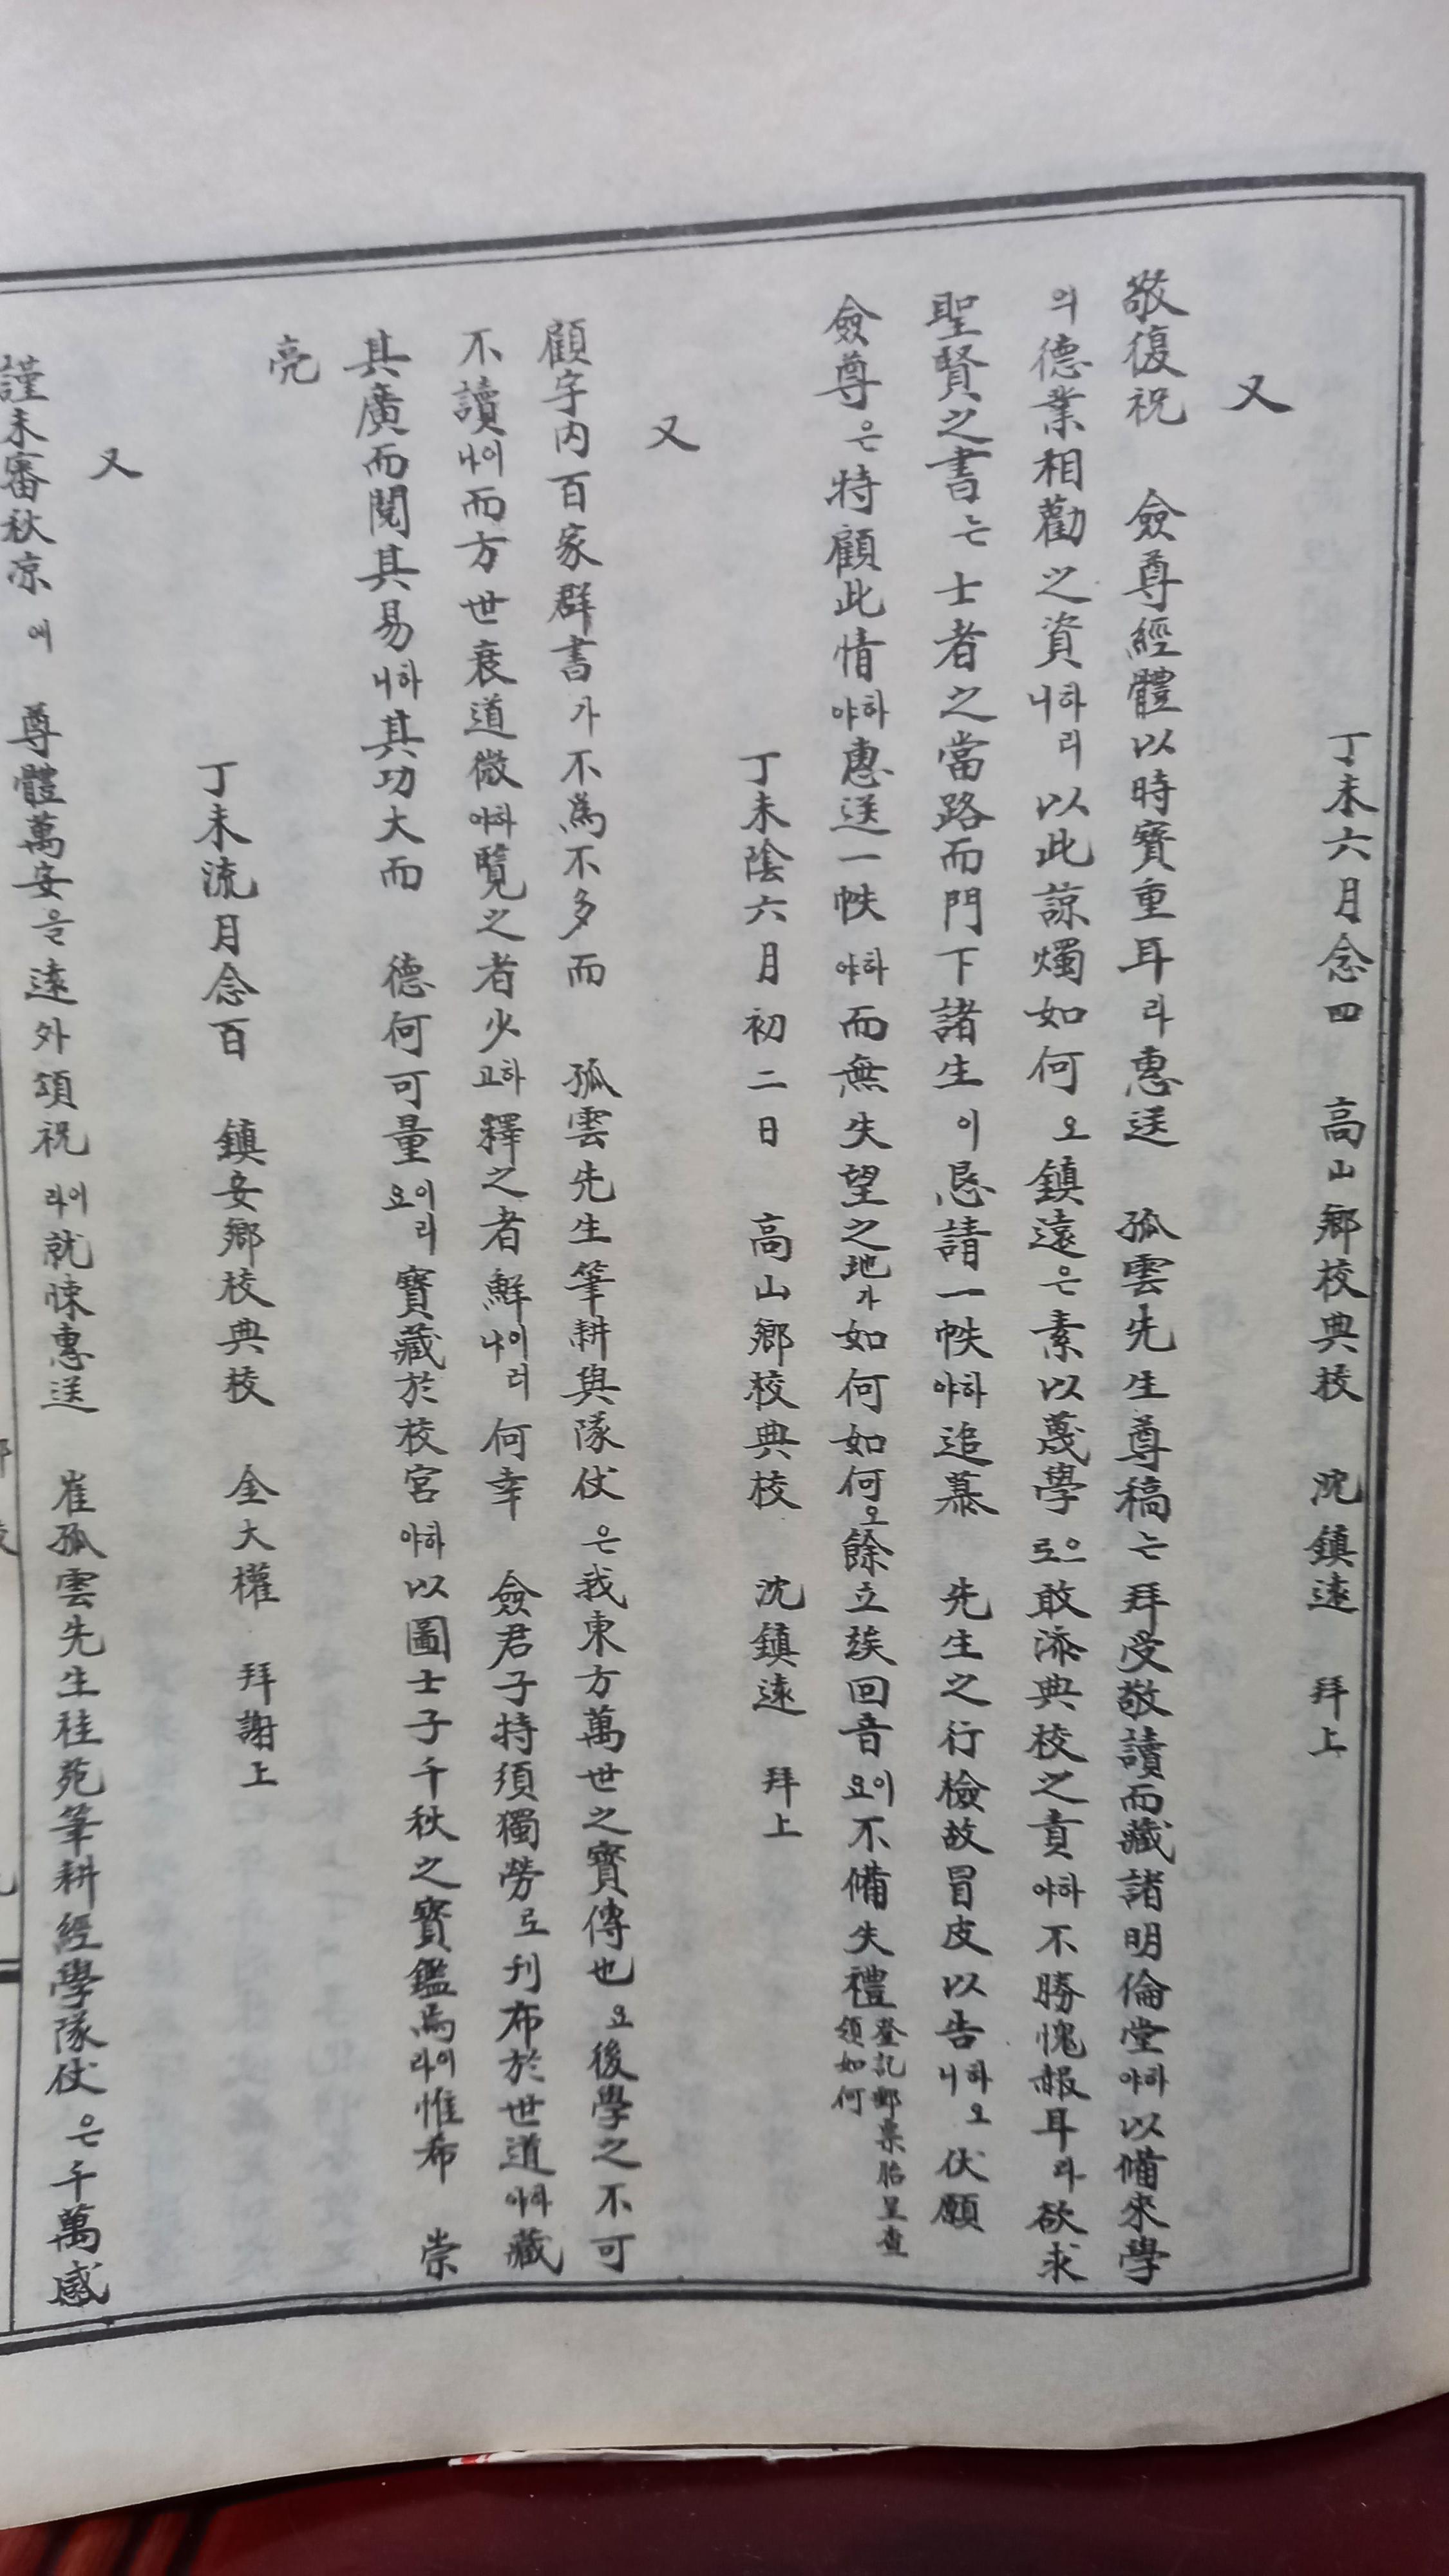 丁未六月念四 高山鄕校典校 沈鎭遠 拜上
又
敬復祝 僉尊經體以時寶重耳라惠送 孤雲先生尊稿는拜受敬讀而藏諸明倫堂하야以備來學
의德業相勸之資하니리以此諒燭如何오鎭遠은素以蔑學으로敢添典校之責하야不勝愧赧耳라欲求
聖賢之書는士者之當路而門下諸生이恳請一帙하야追慕 先生之行檢故冒皮以告하니오伏願
僉尊은特顧此情하야惠送一帙하야而無失望之地가如何如何오餘立竢回音이요不備失禮登記郵票胎呈查領如何
丁未陰六月初二日 高山鄕校典校 沈鎭遠 拜上
又
顧宇內百家群書가不爲不多而 孤雲先生筆耕與隊仗은我東方萬世之寶傳也요後學之不可
不讀이나而方世衰道微하야覽之者少하고釋之者鮮이나러何幸 僉君子特須獨勞로刊布於世道하야藏
其廣而閱其易하니其功大而 德何可量이요리寶藏於校宮하야以圖士子千秋之寶鑑焉이라惟希 崇
亮
丁未流月念百 鎭安鄕校典校 金大權 拜謝上
又
謹未審秋凉에 尊體萬安을遠外頌祝이라就悚惠送 崔孤雲先生桂苑筆耕經學隊仗은千萬感